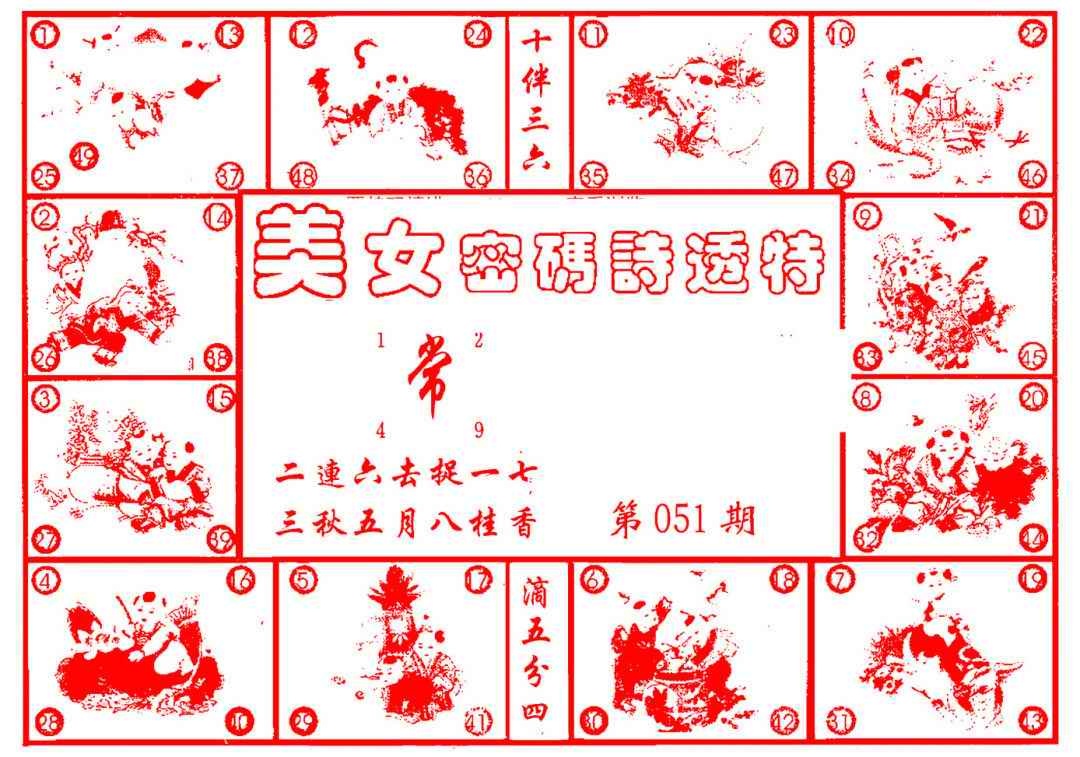 ① ⑬
㊾
㉕ ㊲
⑫ ㉔
㊽ ㊱
十伴三六
⑪ ㉓
㉟ ㊼
⑩ ㉒
㉞ ㊻
② ⑭
㉖ ㊳
美女密碼詩透特
1 2
常
4 9
二連六去捉一七
三秋五月八桂香
第051期
⑨ ㉑
㉝ ㊺
③ ⑮
㉗ ㊴
⑧ ⑳
㉜ ㊹
④ ⑯
㉘ ㊵
⑤ ⑰
㉙ ㊶
滴五分四
⑥ ⑱
㉚ ㊷
⑦ ⑲
㉛ ㊸